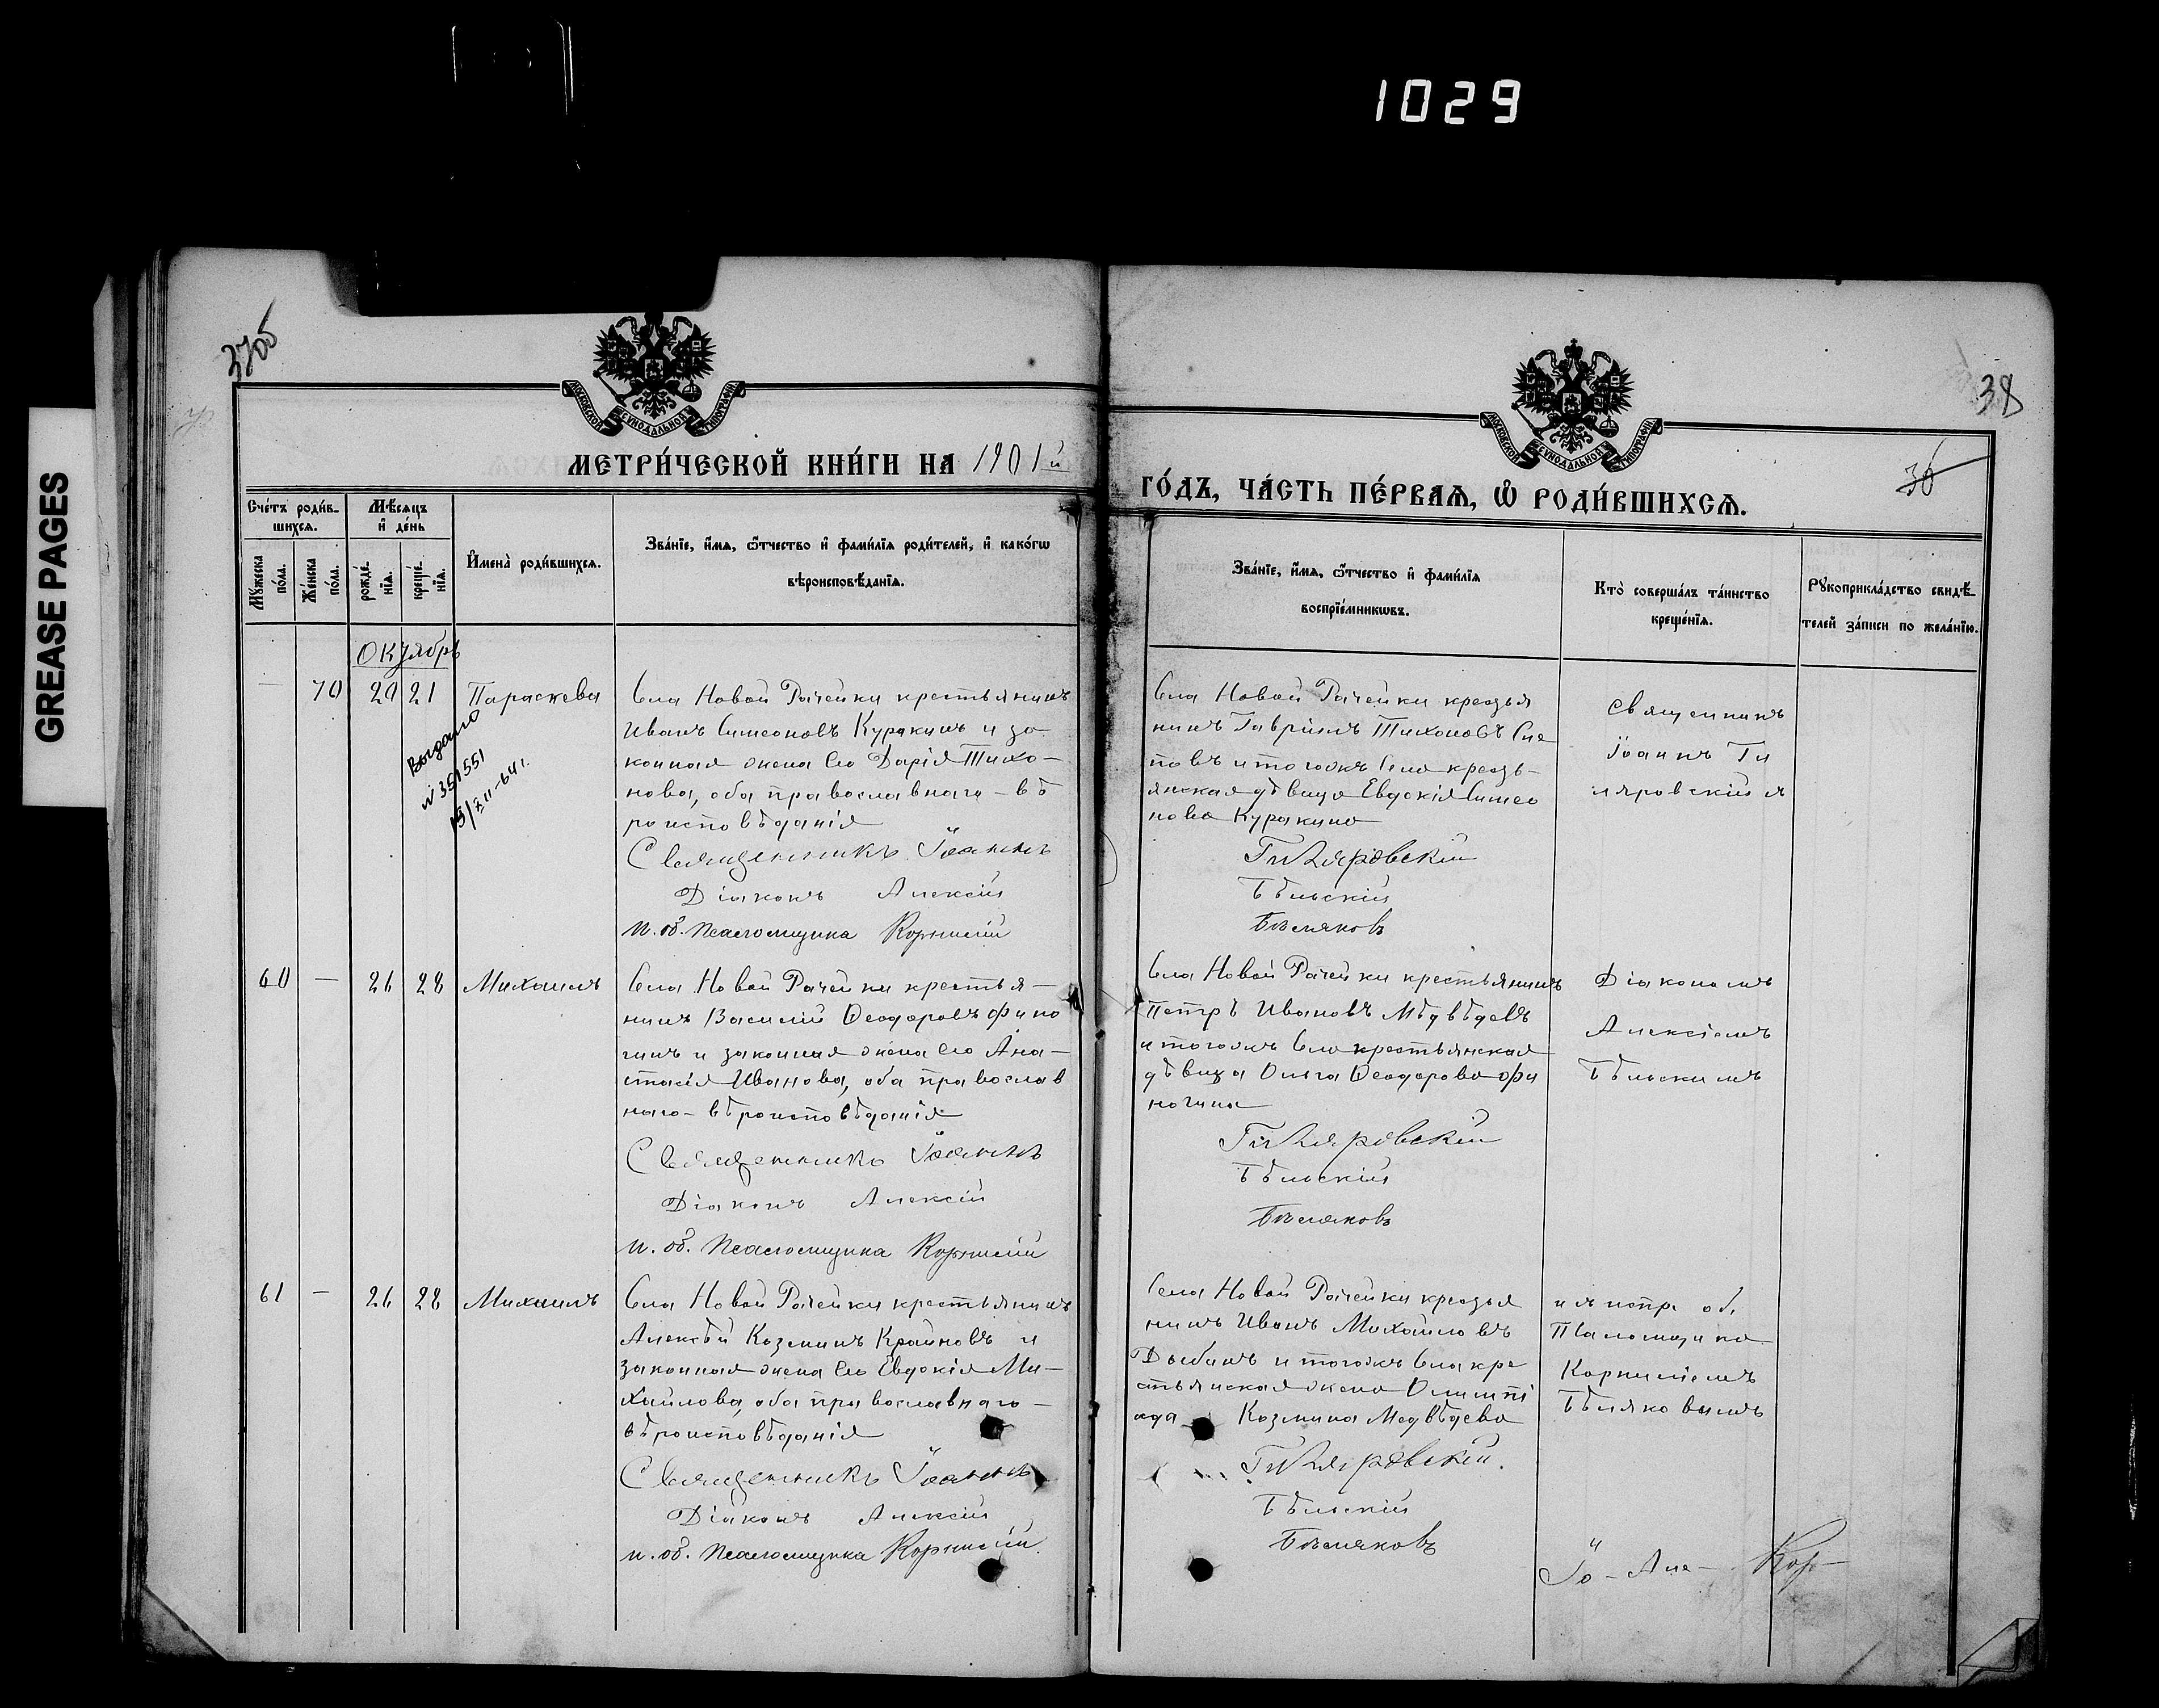 1029
GREASE PAGES
37об
38
МОСКОВСКОЙ СѴНОДАЛЬНОЙ ТИПОГРАФІИ
МОСКОВСКОЙ СѴНОДАЛЬНОЙ ТИПОГРАФІИ
МЕТРИ́ЧЕСКОЙ КНИ́ГИ НА 1901й
ГО́ДЪ, ЧА́СТЬ ПЕ́РВАѦ, Ѡ҆ РОДИ́ВШИХСѦ.
36
Сче́тъ роди́в-
шихсѧ.
Мѣ́сяцъ
и҆ де́нь
Мꙋ́жеска
по́ла.
Же́нска
по́ла.
рожде́-
нїѧ.
креще́-
нїѧ.
И҆мена̀ роди́вшихсѧ.
Зва́нїе, и҆́мѧ, ѻ҆́тчество и҆ фами́лїѧ роди́телей, и҆ како́гѡ
вѣроисповѣ́данїѧ.
Зва́нїе, и҆́мѧ, ѻ҆́тчество и҆ фами́лїѧ
воспрїе́мникѡвъ.
Кто̀ соверша́лъ та́инство
креще́нїѧ.
Рꙋкоприкла́дство свидѣ́-
телей за́писи по жела́нїю.
Октябрь
— 70 20 21 Параскева
Выдано
№ 351551
Села Новой Рачейки крестьянинъ
Иванъ Симеоновъ Куракинъ и за-
конная жена его Дарія Тихо-
нова, оба православнаго-вѣ
роисповѣданія
Священникъ Іоаннъ
Діаконъ Алексій
и. об. псаломщика Корнилій
Села Новой Рачейки крестья
нинъ Гавріилъ Тихоновъ
и тогожъ села кресть-
янская дѣвица Евдокія Симео
нова Куракина
Гиляровскій
Бѣльскій
Бѣляковъ
Священникъ
Іоаннъ Ги
ляровскій
60 — 26 28 Михаилъ
Села Новой Рачейки крестья-
нинъ Василій Ѳеодоровъ Фино
гинъ и законная жена его Ана-
стасія Иванова, оба православ
наго-вѣроисповѣданія
Священникъ Іоаннъ
Діаконъ Алексій
и. об. псаломщика Корнилій
Села Новой Рачейки крестьянинъ
Петръ Ивановъ Мѣдвѣдевъ
и тогожъ села крестьянская
дѣвица Ольга Ѳеодорова Фи
ногина
Гиляровскій
Бѣльскій
Бѣляковъ
Діакономъ
Алексіемъ
Бѣльскимъ
61 — 26 28 Михаилъ
Села Новой Рачейки крестьянинъ
Алексѣй Козминъ Крайновъ и
законная жена его Евдокія Ми-
хайлова, оба православнаго-
вѣроисповѣданія
Священникъ Іоаннъ
Діаконъ Алексій
и. об. псаломщика Корнилій
Села Новой Рачейки крестья
нинъ Иванъ Михайловъ
и тогожъ села кре
стьянская жена Олимпі
ада Козмина Медвѣдева
Гиляровскій.
Бѣльскій
Бѣляковъ
об.
Псаломщика
Корниліемъ
Бѣляковымъ
Іо- Але- Кор-